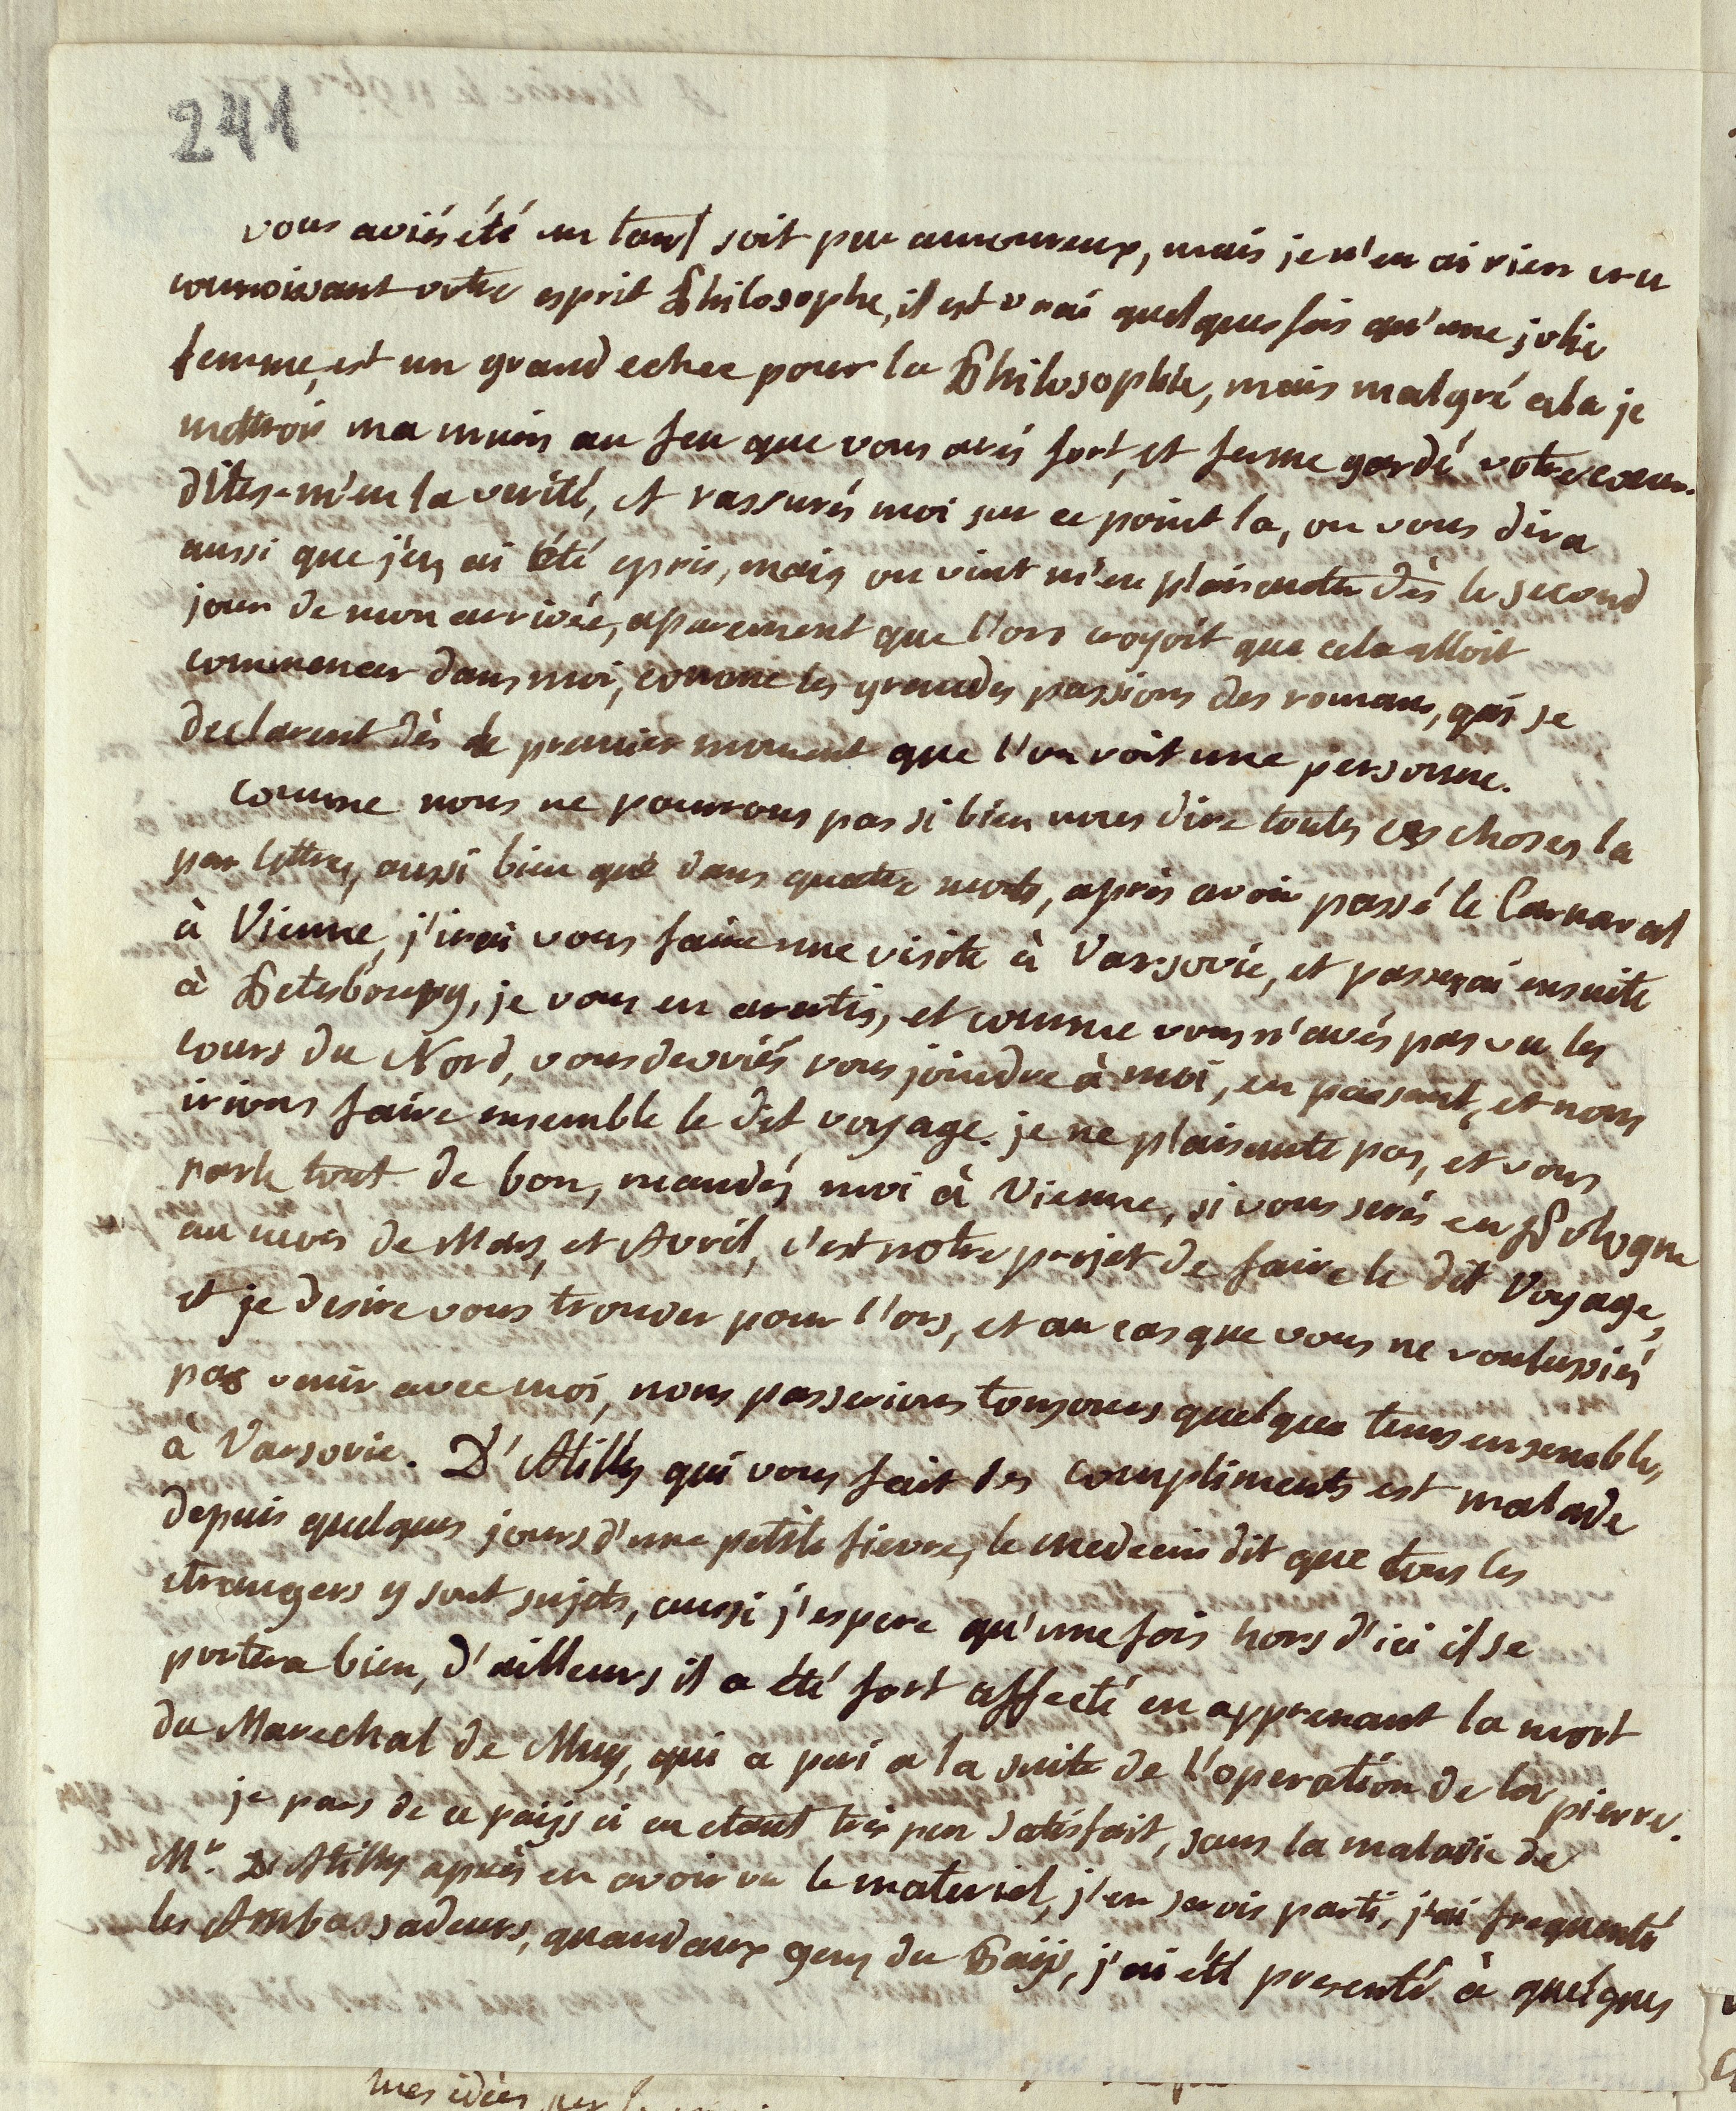 241
vous aviés été un tant soit peu amoureux, mais je n'en ai rien cru
connoissant votre esprit Philosophe, il est vrai quelques fois qu'une jolie
femme, est un grand echec pour la Philosophie, mais malgré cela je
mettrois ma main au feu que vous avés fort, et ferme gardé votre cœur.
dites-m'en la verité, et rassurés moi sur ce point la, on vous dira
aussi que j'en ai été epris, mais on vint m'en plaisanter dès le second
jour de mon arrivée, aparement que l'on croyoit que cela alloit
commencer dans moi, comme les grandes passions des romans, qui se
declarent dès le premier moment que l'on voit une personne.
comme nous ne pourrons pas si bien nous dire toutes ces choses la
par lettres, aussi bien que dans quatre mois, après avoir passé le Carnaval
à Vienne, j'irai vous faire une visite à Varsovie, et passerai ensuite
à Petesbourg, je vous en avertis, et comme vous n'avés pas vu les
cours du Nord, vous devriés vous joindre à moi, en passant, et nous
irions faire ensemble le dit voyage. je ne plaisante pas, et vous
parle tout de bon, mandés moi à Vienne, si vous serés en Pologne
au mois de Mars, et Avril, c'est notre projet de faire le dit Voyage,
et je desire vous trouver pour l'ors, et au cas que vous ne voulussiés
pas venir avec moi, nous passerions toujours quelque tems ensemble,
à Varsovie. D'Atilly qui vous fait des compliments est malade
depuis quelques jours d'une petite fievre, le medecin dit que tous les
etrangers y sont sujets, aussi j'espere qu'une fois hors d'ici il se
portera bien, d'ailleurs il a été fort affecté en apprenant la mort
du Marechal de Muy, qui a peri a la suite de l'operation de la pierre.
je pars de ce paijs ci en etant très peu satisfait, sans la maladie de
Mr. D'Atilly après en avoir vu le materiel, j'en serois parti, j'ai frequenté
les Ambassadeurs, quand aux gens du Païjs, j'ai été presenté à quelques
mes idées